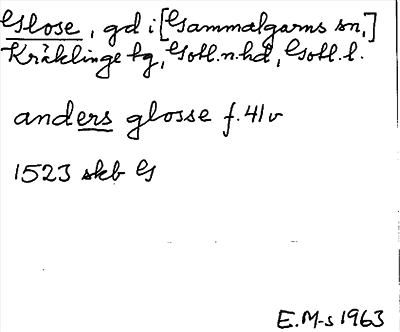 Glose, gd i [Gammalgarns sn,]
Kräklinge tg, Gotl.n.hd, Gotl.l.
anders glosse f.41v
1523 skb G
E.M-s 1963